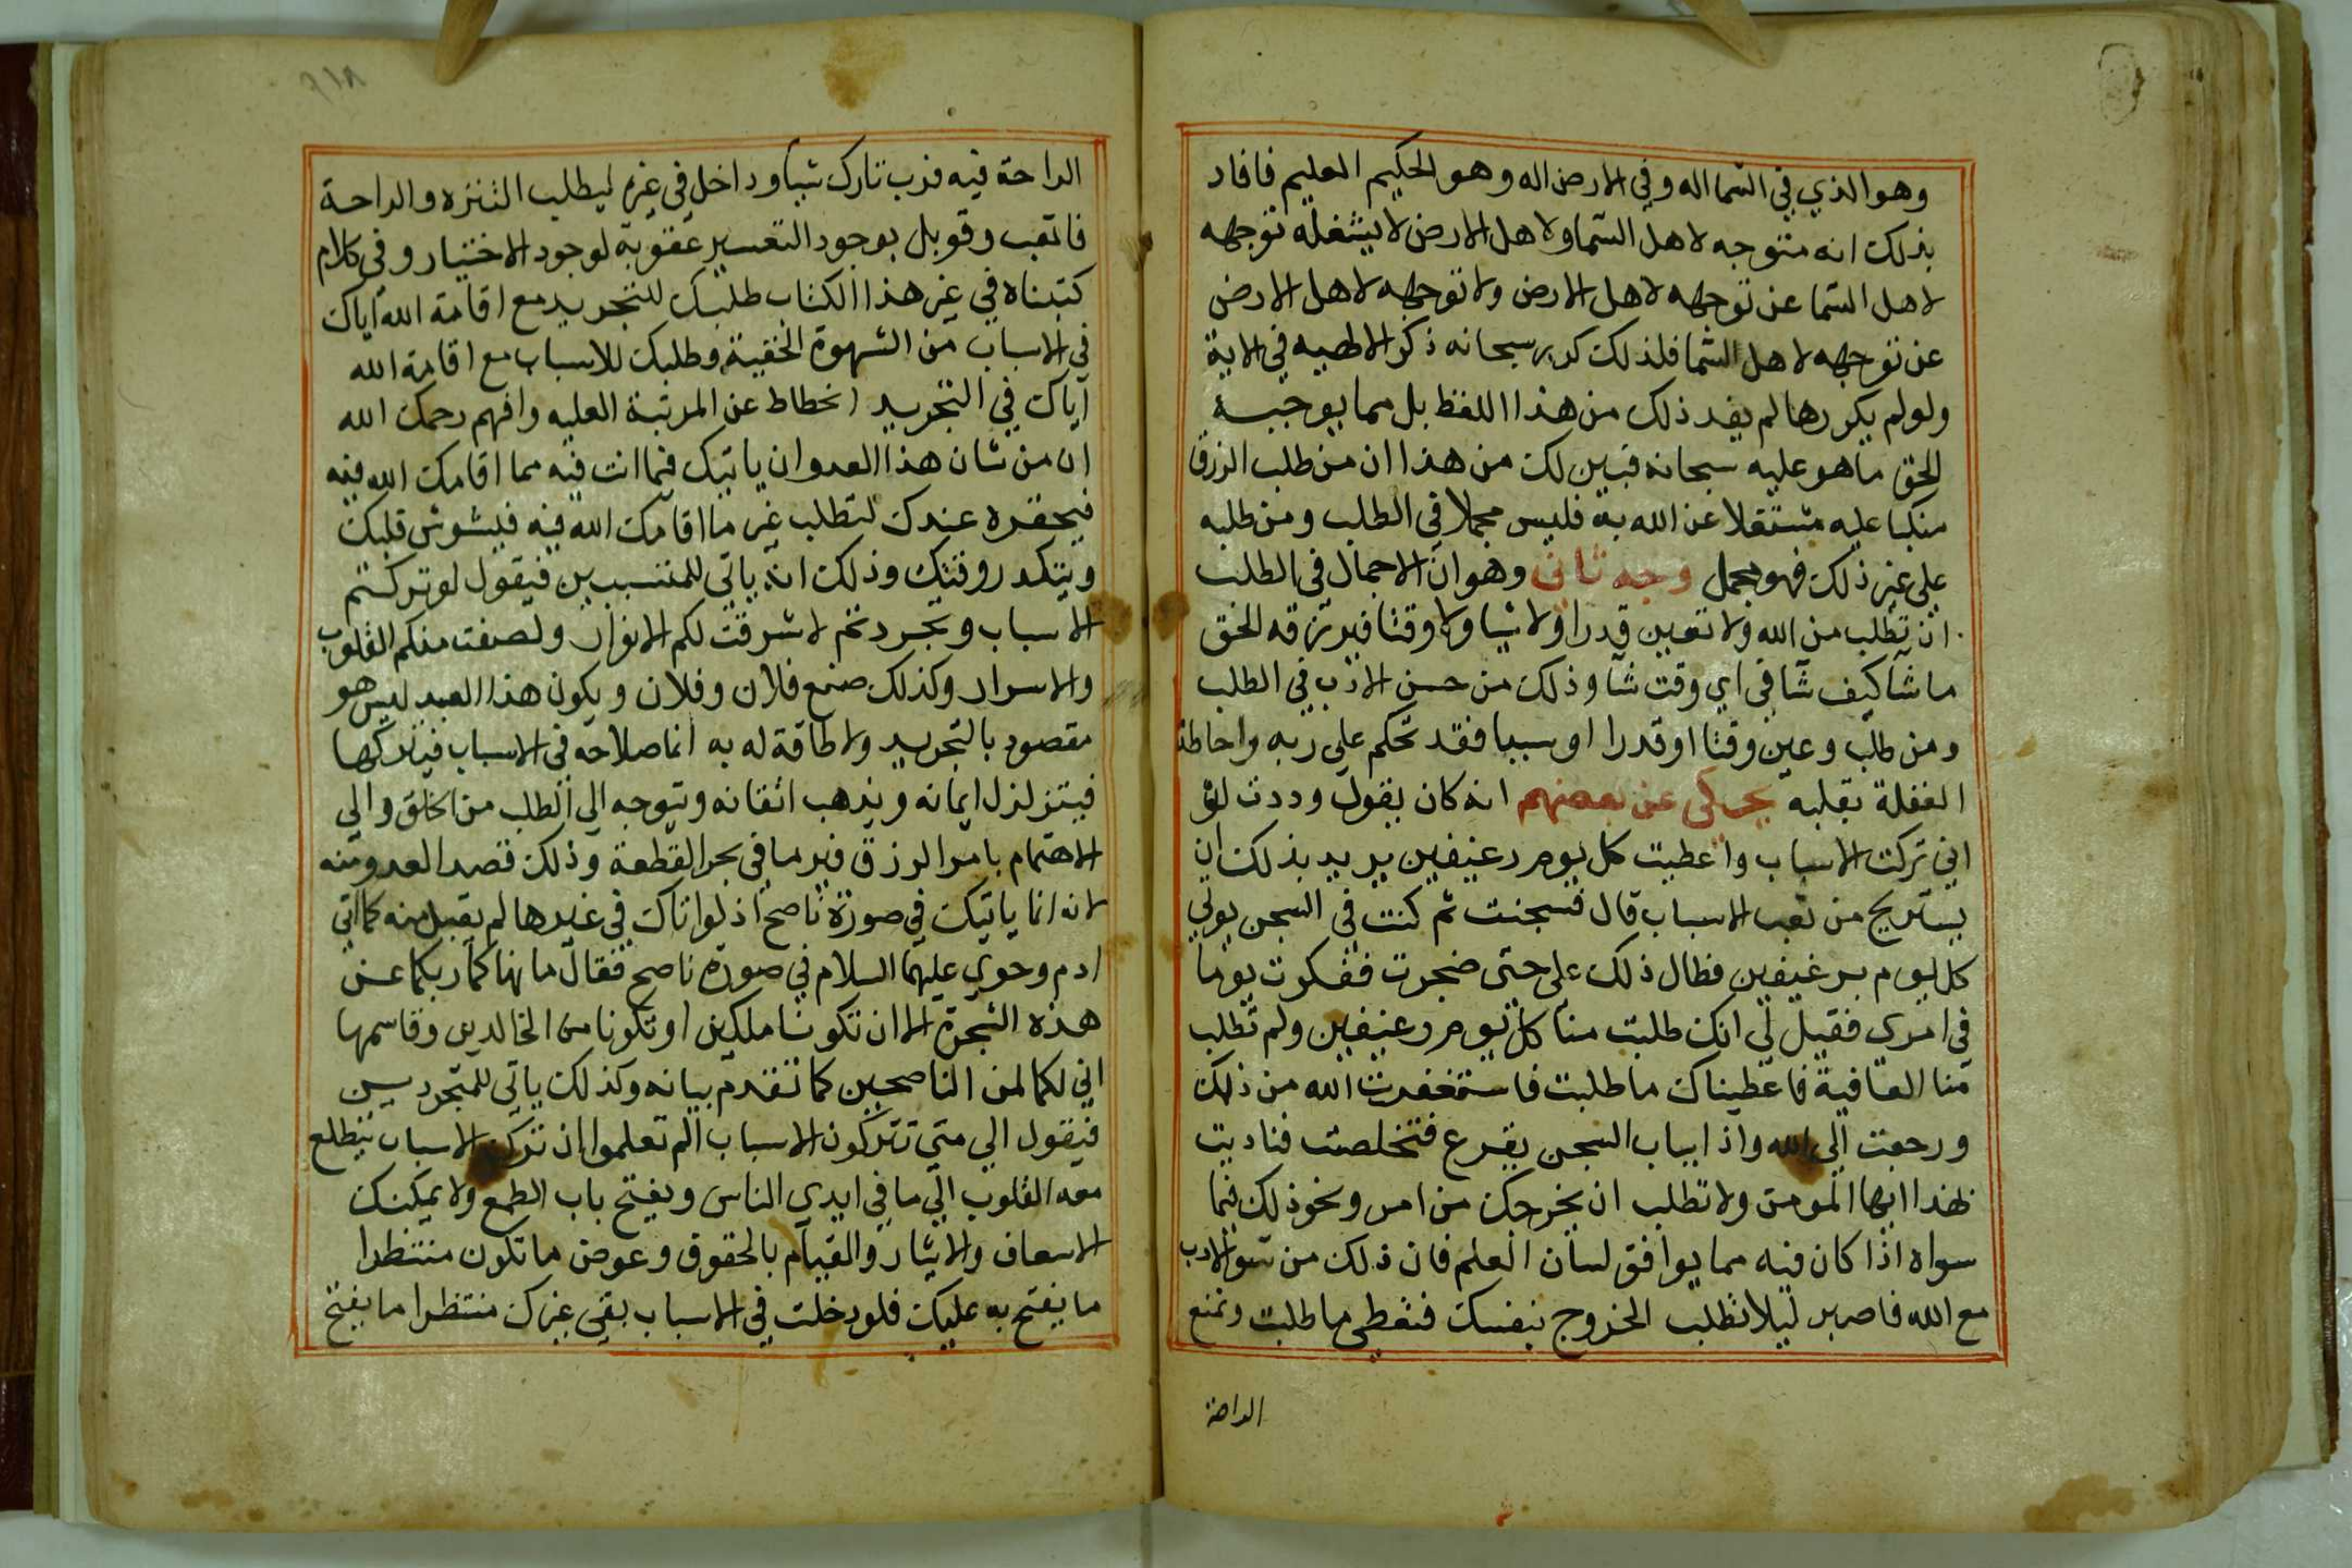 وهو الذي في السما اله وفي الارض اله وهو الحكيم العليم فافاد
بذلك انه متوجه لاهل السما ولاهل الارض لا يشغله توجهه
لاهل السما عن توجهه لاهل الارض ولا توجهه لاهل الارض
عن توجهه لاهل السما فلذلك كرر سبحانه ذكر الالهيه في الاية
ولو لم يكررها لم يفد ذلك من هذا اللفظ بل مما يوجبه
الحق ما هو عليه سبحانه فتبين لك من هذا ان من طلب الرزق
منكبا عليه مشتغلا عن الله به فليس مجملا في الطلب ومن طلبه
على غير ذلك فهو مجمل وجه ثاني وهو ان الاجمال في الطلب
ان تطلب من الله ولا تعين قدرا ولا شيا ولا وقتا فيرزقه الحق
ما شا كيف شا في اي وقت شا وذلك من حسن الادب في الطلب
ومن طلب وعين وقتا او قدرا او سببا فقد تحكم على ربه واحاطة
الغفلة بقلبه يحكى عن بعضهم انه كان يقول وددت لو
اني تركت الاسباب واعطيت كل يوم رغيفين يريد بذلك ان
يستريح من تعب الاسباب قال فسجنت ثم كنت في السجن يولي
كل يوم برغيفين فطال ذلك على حتى ضجرت ففكرت يوما
في امري فقيل لي انك طلبت منا كل يوم رغيفين ولم تطلب
منا العافية فاعطيناك ما طلبت فاستغفرت الله من ذلك
ورجعت الى الله واذا بباب السجن يقرع فتخلصت فناديت
لهذا ايها المومن ولا تطلب ان يخرجك من امر ونحو ذلك فيما
سواه اذا كان فيه مما يوافق لسان العلم فان ذلك من سو الادب
مع الله فاصبر ليلا تطلب الخروج بنفسك فتعطي ما طلبت وتمنع
الراحة
الراحة فيه فرب تارك شيا وداخل في غيره ليطلب التنزه والراحة
فاتعب وقوبل بوجود التعسير عقوبة لوجود الاختيار وفي كلام
كتبناه في غير هذا الكتاب طلبك للتجريد مع اقامة الله اياك
في الاسباب من الشهوة الخفية وطلبك للاسباب مع اقامة الله
اياك في التجريد انحطاط عن المرتبة العليه وافهم رحمك الله
ان من شان هذا العدو ان ياتيك فيما انت فيه مما اقامك الله فيه
فيحقره عندك لتطلب غير ما اقامك الله فيه فيشوش قلبك
ويتكدر وقتك وذلك انه ياتي للمتسببين فيقول لو تركتم
الاسباب وتجردتم لاشرقت لكم الانوار ولصفت منكم القلوب
والاسرار وكذلك صنع فلان وفلان ويكون هذا العبد ليس هو
مقصود بالتجريد ولا طاقة له به انما صلاحه في الاسباب فيتركها
فيتزلزل ايمانه ويذهب اتقانه ويتوجه الي الطلب من الخلق والي
الاهتمام بامر الرزق فيرما في بحر القطعة وذلك قصد العدو منه
لانه انما ياتيك في صورة ناصح اذ لو اتاك في غيرها لم يقبل منه كما اتي
ادم وحوي عليهما السلام في صورة ناصح فقال ما نهاكما ربكما عن
هذه الشجرة الا ان تكونا ملكين او تكونا من الخالدين وقاسمهما
اني لكما لمن الناصحين كما تقدم بيانه وكذلك ياتي للمتجردين
فيقول الي متي تتركون الاسباب الم تعلموا ان ترك الاسباب يتطلع
معه القلوب الي ما في ايدي الناس ويفتح باب الطمع ولا يمكنك
الاسعاف والايثار والقيام بالحقوق وعوض ما تكون منتظرا
ما يفتح به عليك فلو دخلت في الاسباب بقي غيرك منتظرا ما يفتح